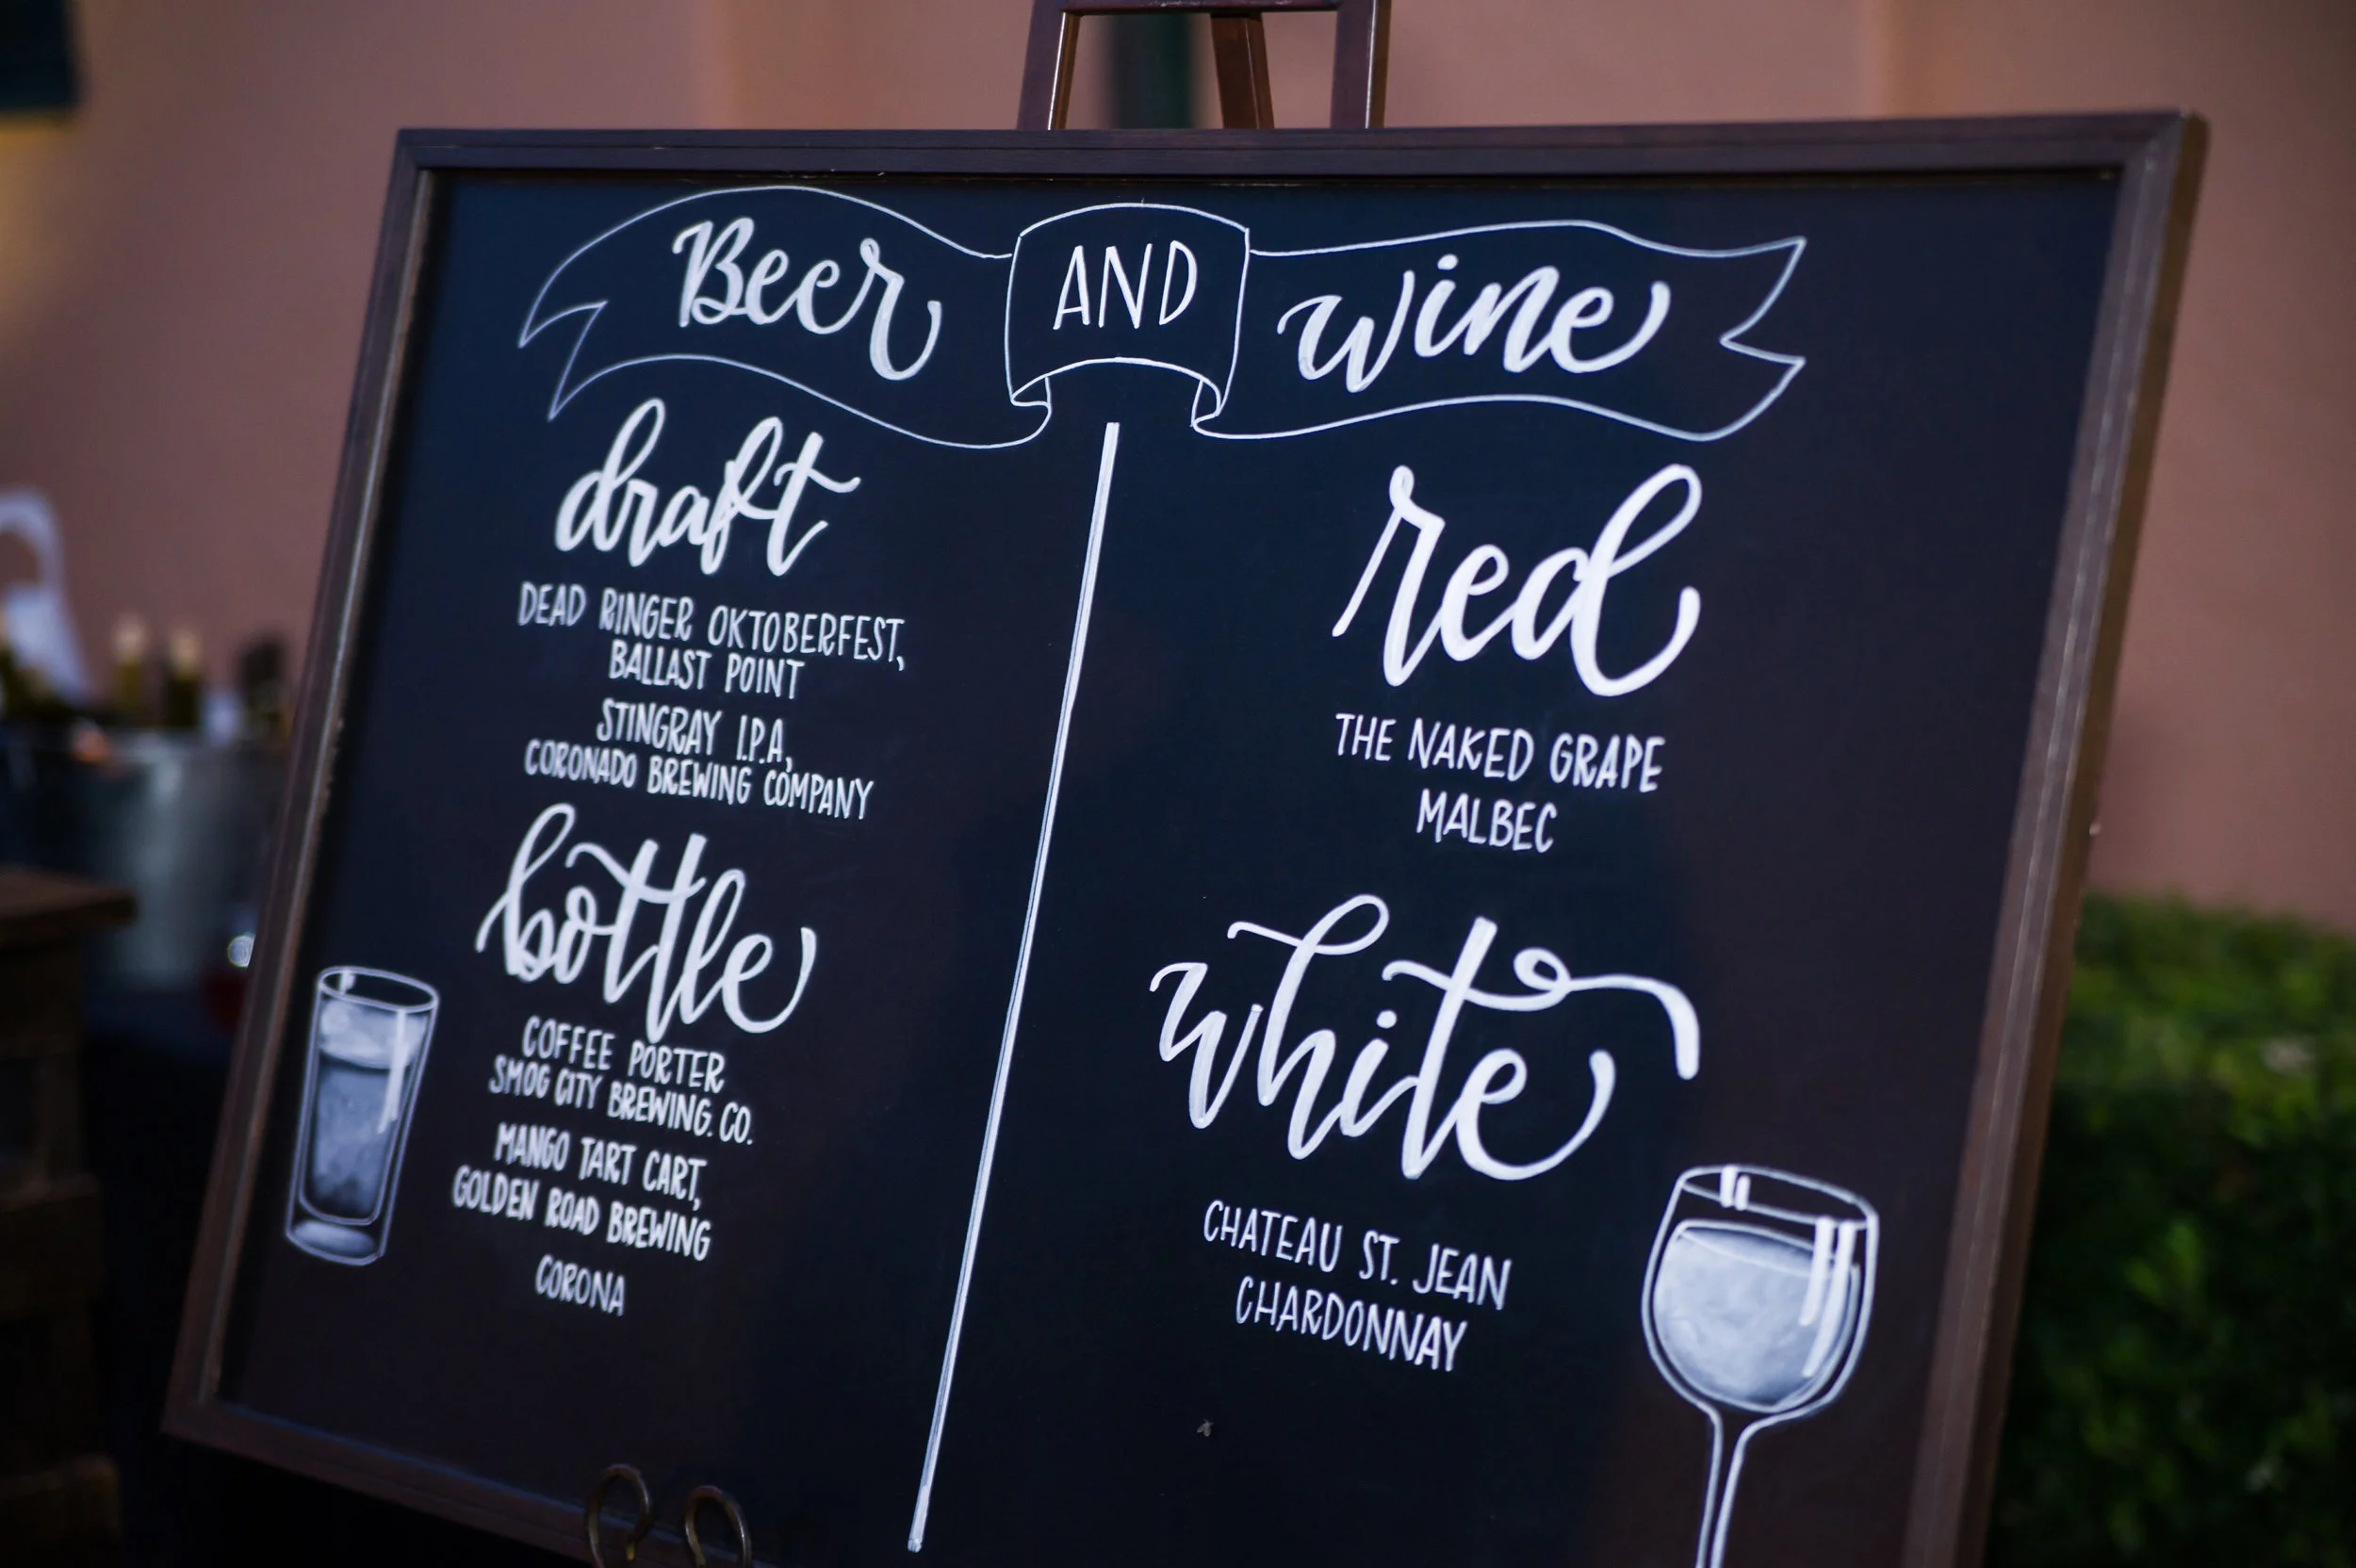 Beer AND Wine
draft
DEAD RINGER OKTOBERFEST,
BALLAST POINT
STINGRAY I.P.A,
CORONADO BREWING COMPANY
bottle
COFFEE PORTER
SMOG CITY BREWING. CO.
MANGO TART CART,
GOLDEN ROAD BREWING
CORONA
red
THE NAKED GRAPE
MALBEC
white
CHATEAU ST. JEAN
CHARDONNAY